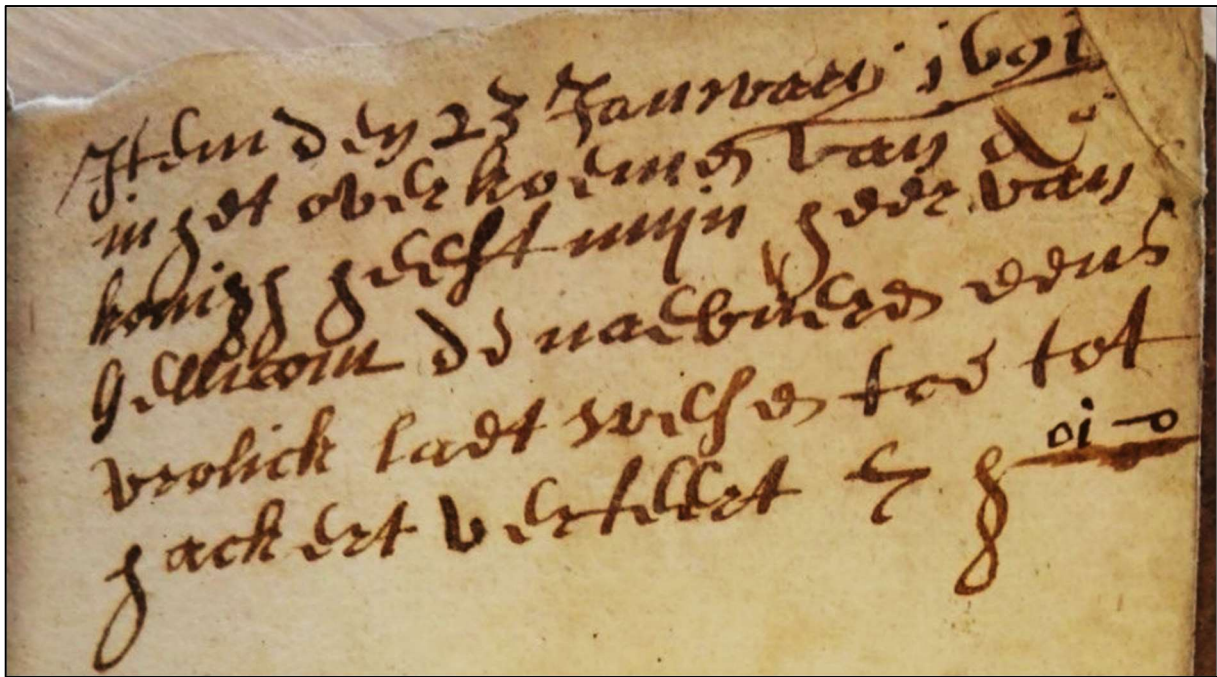 Item den 23 Januarij 1691
in het overkoemen van de
konigh heeft mijn heer van
Gellicom de naebueren eens
vrolick laet wesen toe tot
hackert verteert